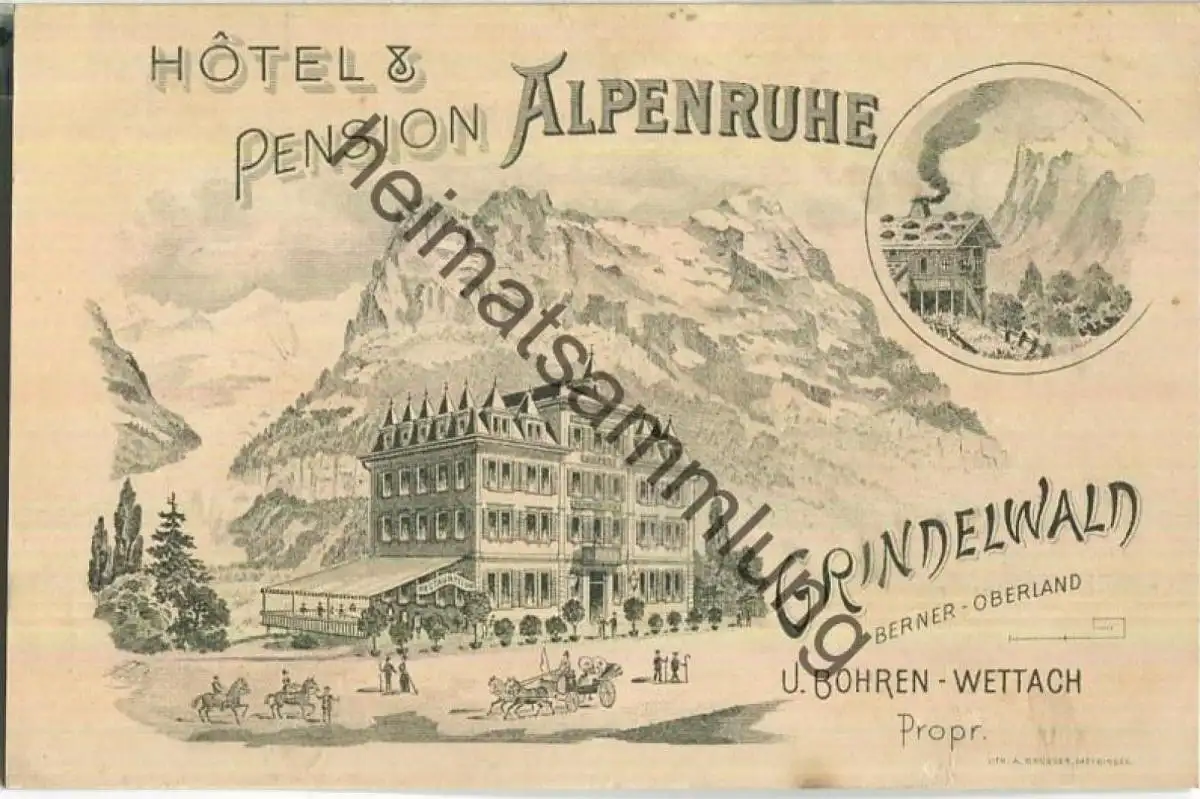 HÔTEL &
PENSION ALPENRUHE
heimatsammlung
RESTAURATION
GRINDELWALD
BERNER-OBERLAND
U. BOHREN-WETTACH
Propr.
LITH. A.